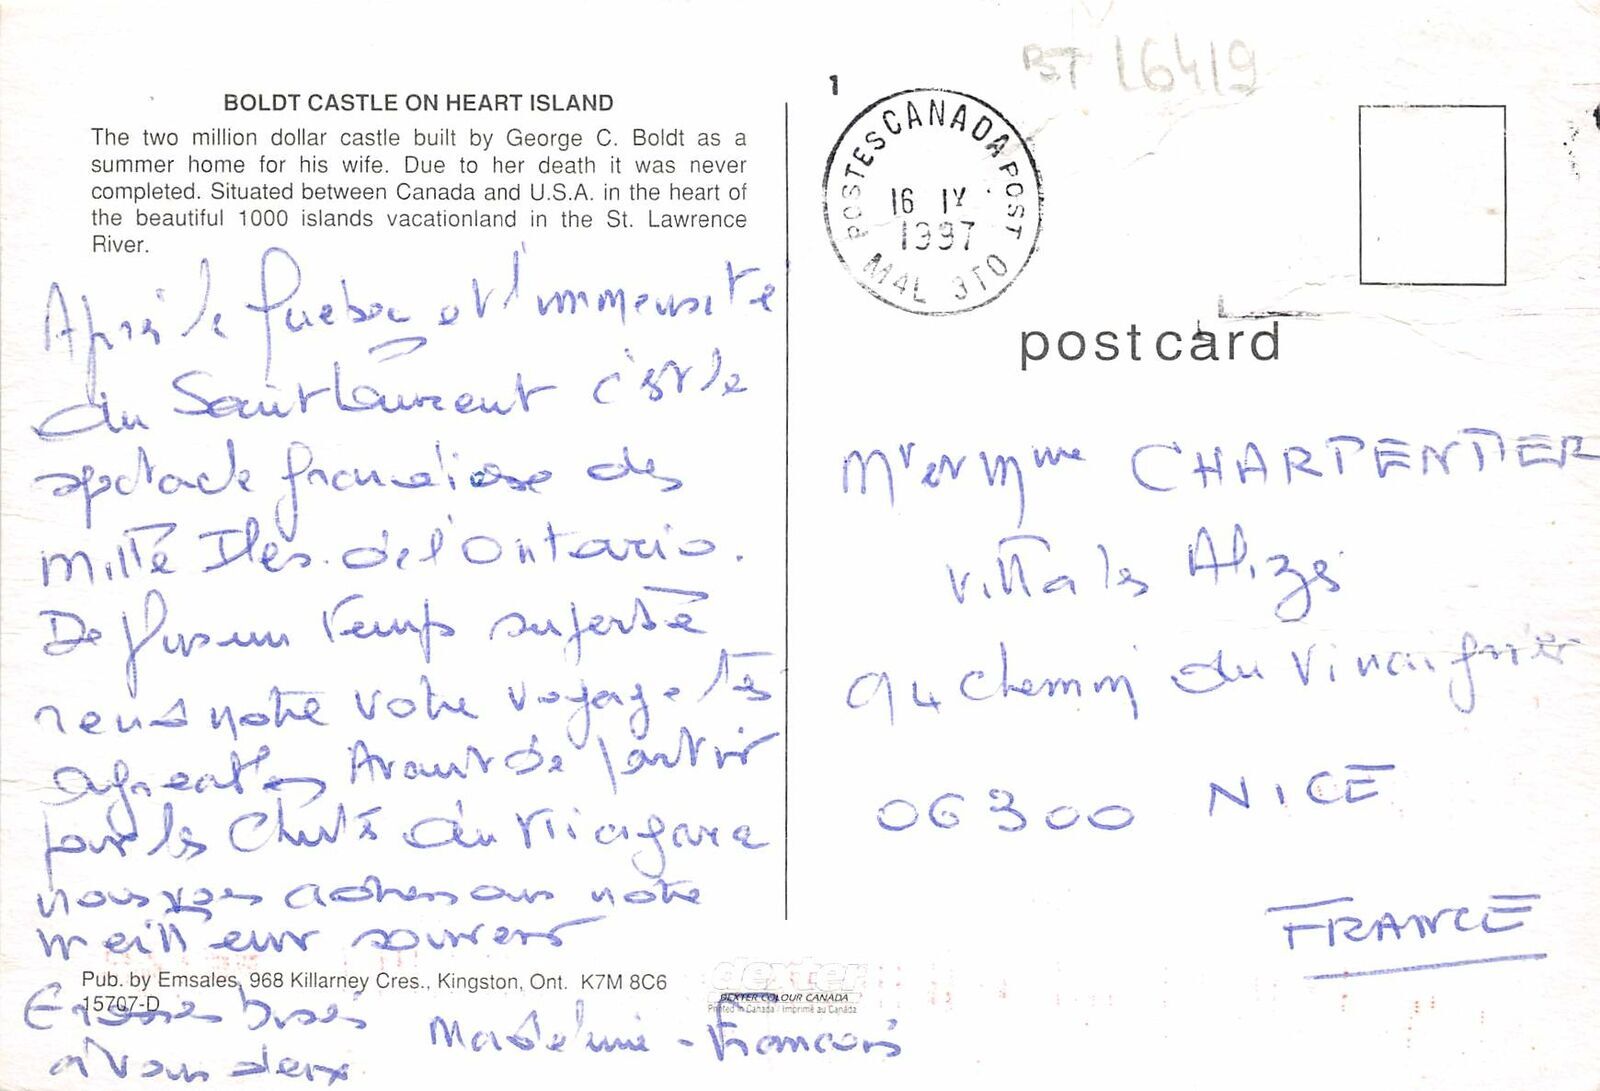 BOLDT CASTLE ON HEART ISLAND
The two million dollar castle built by George C. Boldt as a
summer home for his wife. Due to her death it was never
completed. Situated between Canada and U.S.A. in the heart of
the beautiful 1000 islands vacationland in the St. Lawrence
River.
Après le Québec et l'immensité
du Saint Laurent c'est le
spectacle grandiose des
Mille Iles de l'Ontario.
De plus un temps superbe
rend notre votre voyage très
agréables Avant de partir
pour les Chutes du Niagara
nous vous adressons notre
meilleur souvenir
Pub. by Emsales, 968 Killarney Cres., Kingston, Ont. K7M 8C6
15707-D
Grosses bises
à vous deux
Madeleine - Francois
dexter
DEXTER COLOUR CANADA
Printed in Canada / Imprimé au Canada
BT 16419
1
POSTES CANADA POST
16 IX
1997
M4L 3T0
postcard
Mr et Mme CHARPENTIER
Villa les Alizés
94 chemin du Vinaigrier
06300 NICE
FRANCE